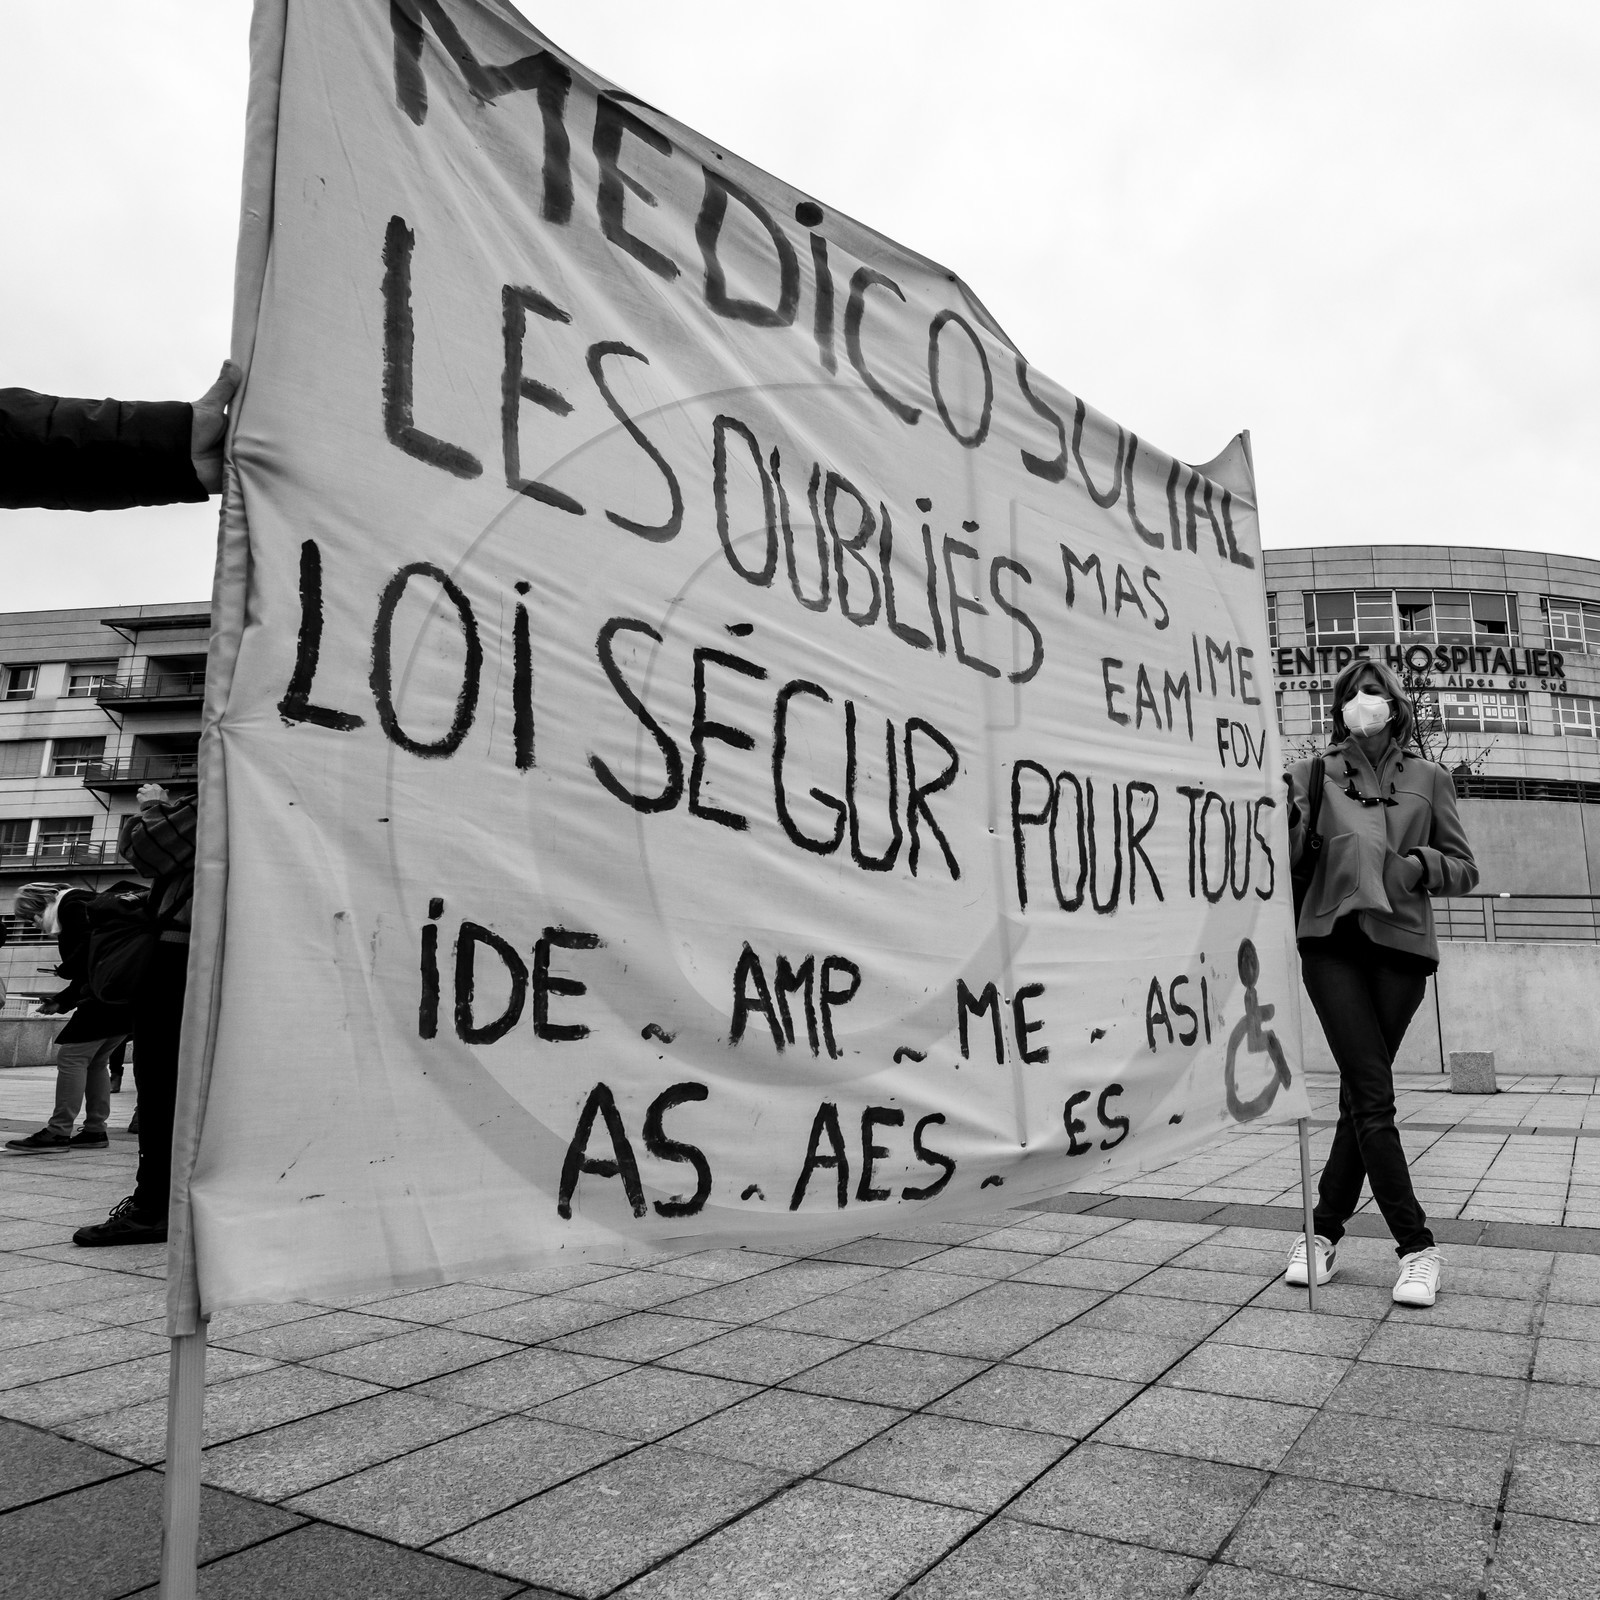 MÉDICO SOCIAL
LES OUBLIÉS
MAS
IME
EAM
FDV
LOI SÉGUR POUR TOUS
IDE - AMP - ME - ASI
AS - AES - ES -
CENTRE HOSPITALIER
des Alpes du Sud